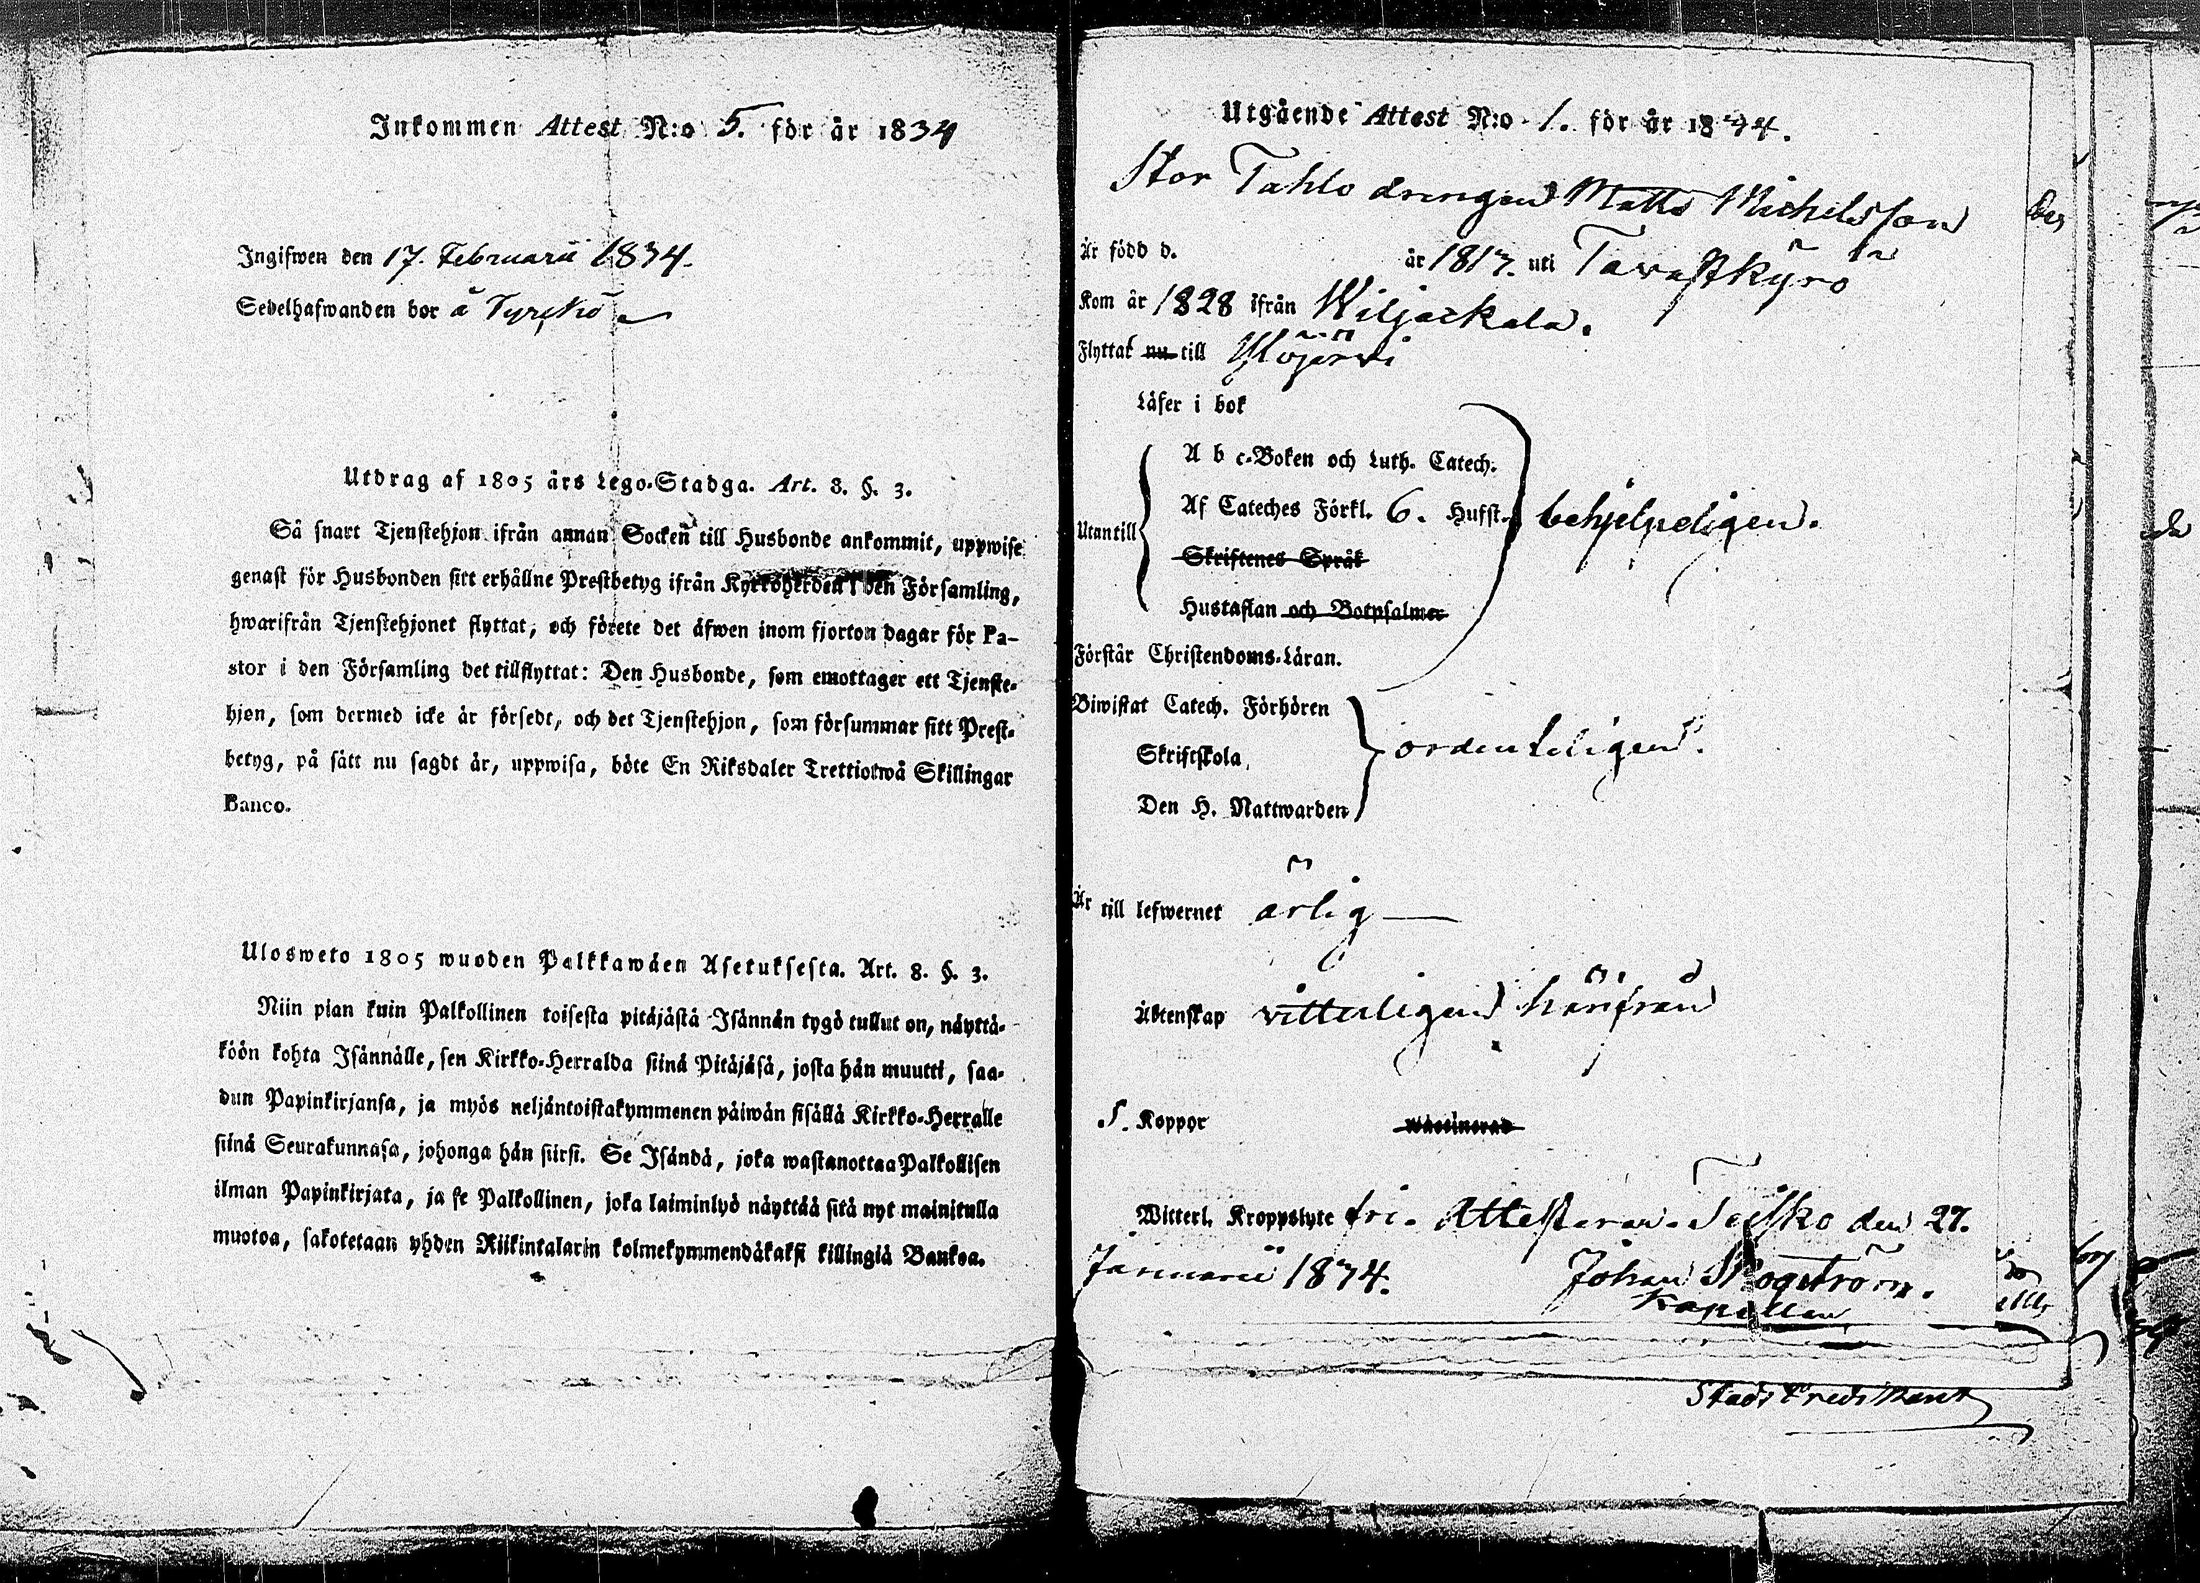 Inkommen Attest N:o 5. för år 1834
Ingifwen den 17. Februarii 1834.
Sedelhafwanden bor å Tyrckö
Utdrag af 1805 års Lego-Stadga. Art. 8. §. 3.
Så snart Tjenstehjon ifrån annan Socken till Husbonde ankommit, uppwise
genast för Husbonden sitt erhållne Prestbetyg ifrån Kyrkoherden i den Församling,
hwarifrån Tjenstehjonet flyttat, och förete det äfwen inom fjorton dagar för Pa-
stor i den Församling det tillflyttat: Den Husbonde, som emottager ett Tjenste-
hjon, som dermed icke är försedt, och det Tjenstehjon, som försummar sitt Prest-
betyg, på sätt nu sagdt är, uppwisa, böte En Riksdaler Trettiotwå Skillingar
Banco.
Ulosweto 1805 wuoden Palkkawäen Asetuksesta. Art. 8. §. 3.
Niin pian kuin Palkollinen toisesta pitäjästä Isännän tygö tullut on, näyttä-
köön kohta Isännälle, sen Kirkko-Herralda siinä Pitäjäsä, josta hän muutti, saa-
dun Papinkirjansa, ja myös neljäntoistakymmenen päiwän sisällä Kirkko-Herralle
siinä Seurakunnasa, johonga hän siirsi. Se Isändä, joka wastanottaa Palkollisen
ilman Papinkirjata, ja se Palkollinen, joka laiminlyö näyttää sitä nyt mainitulla
muotoa, sakotetaan yhden Riikintalarin kolmekymmendäkaksi killingiä Bankoa.
Utgående Attest N:o 1. för år 1834.
Stor Tahlo drengen Matts Michelsson
Är född d. år 1817. uti Tavastkyrö
Kom år 1828 ifrån Wiljackala.
Flyttat nu till Ylöjärvi
Läser i bok
A b c-Boken och Luth. Catech.
Utantill Af Cateches Förkl. 6. Hufst. behjelpeligen.
Skriftenes Språk
Hustaflan och Botpsalmer
Förstår Christendoms-Läran.
Biwistat Catech. Förhören
Skriftskola ordenteligen.
Den H. Nattwarden
Är till lefwernet ärlig
Äktenskap vitterligen härifrån
S. Koppor Waccinerad
Witterl. Kroppslyte fri. Attesterar. Teisko den 27.
Januarii 1834. Johan Skogström.
Kapellan